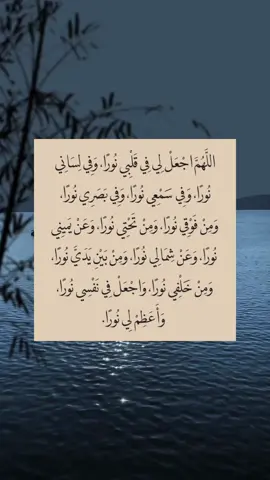 اللَّهُمَّ اجْعَلْ لِي فِي قَلْبِي نُورًا، وَفِي لِسَانِي
نُورًا، وَفِي سَمْعِي نُورًا، وَفِي بَصَرِي نُورًا،
وَمِنْ فَوْقِي نُورًا، وَمِنْ تَحْتِي نُورًا، وَعَنْ يَمِينِي
نُورًا، وَعَنْ شِمَالِي نُورًا، وَمِنْ بَيْنِ يَدَيَّ نُورًا،
وَمِنْ خَلْفِي نُورًا، وَاجْعَلْ فِي نَفْسِي نُورًا،
وَأَعْظِمْ لِي نُورًا.